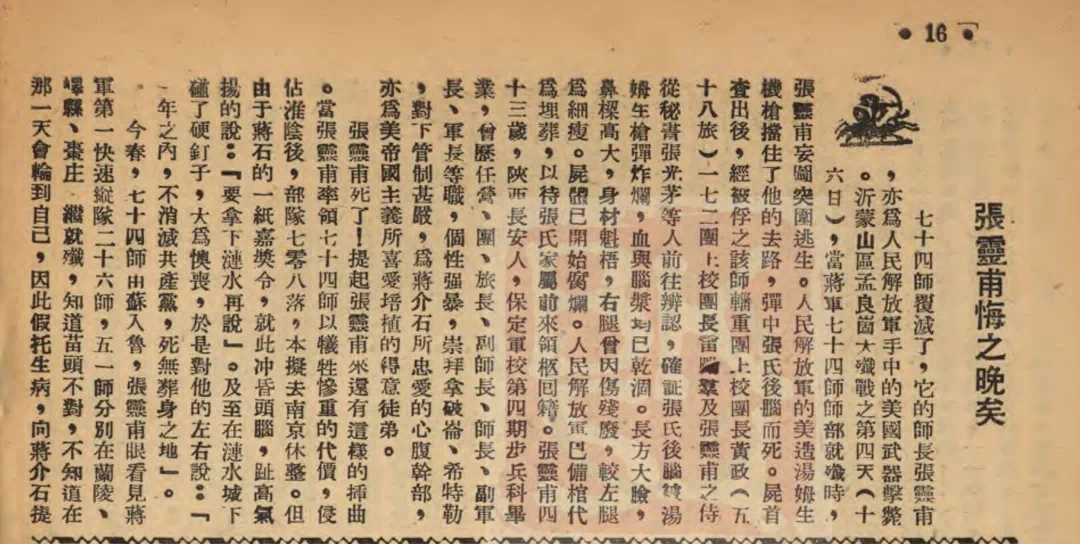 16
張靈甫悔之晚矣
七十四師覆滅了，它的師長張靈甫
，亦爲人民解放軍手中的美國武器擊斃
。沂蒙山區孟良崮大殲戰之第四天（十
六日），當蔣軍七十四師師部就殲時，
張靈甫妄圖突圍逃生。人民解放軍的美造湯姆生
機槍擋住了他的去路，彈中張氏後腦而死。屍首
查出後，經被俘之該師輜重團上校團長黃政（五
十八旅）一七二團上校團長雷羣及張靈甫之侍
從秘書張光茅等人前往辨認，確証張氏後腦被湯
姆生槍彈炸爛，血與腦漿均已乾涸。長方大臉，
鼻樑高大，身材魁梧，右腿曾因傷殘廢，較左腿
爲細瘦。屍體已開始腐爛。人民解放軍已備棺代
爲埋葬，以待張氏家屬前來領柩回籍。張靈甫四
十三歲，陝西長安人，保定軍校第四期步兵科畢
業，曾歷任營、團、旅長、副師長、師長、副軍
長、軍長等職，個性强暴，崇拜拿破崙、希特勒
，對下管制甚嚴，爲蔣介石所忠愛的心腹幹部，
亦爲美帝國主義所喜愛培植的得意徒弟。
張靈甫死了！提起張靈甫來還有這樣的揷曲
。當張靈甫率領七十四師以犧牲慘重的代價，侵
佔淮陰後，部隊七零八落，本擬去南京休整。但
由于蔣石的一紙嘉獎令，就此冲昏頭腦，趾高氣
揚的說：『要拿下漣水再說』。及至在漣水城下
碰了硬釘子，大爲懊喪，於是對他的左右說：『
一年之內，不消滅共產黨，死無葬身之地』。
今春，七十四師由蘇入魯，張靈甫眼看見蔣
軍第一快速縱隊二十六師，五一師分別在蘭陵、
嶧縣、棗庄 繼就殲，知道苗頭不對，不知道在
那一天會輪到自己，因此假托生病，向蔣介石提